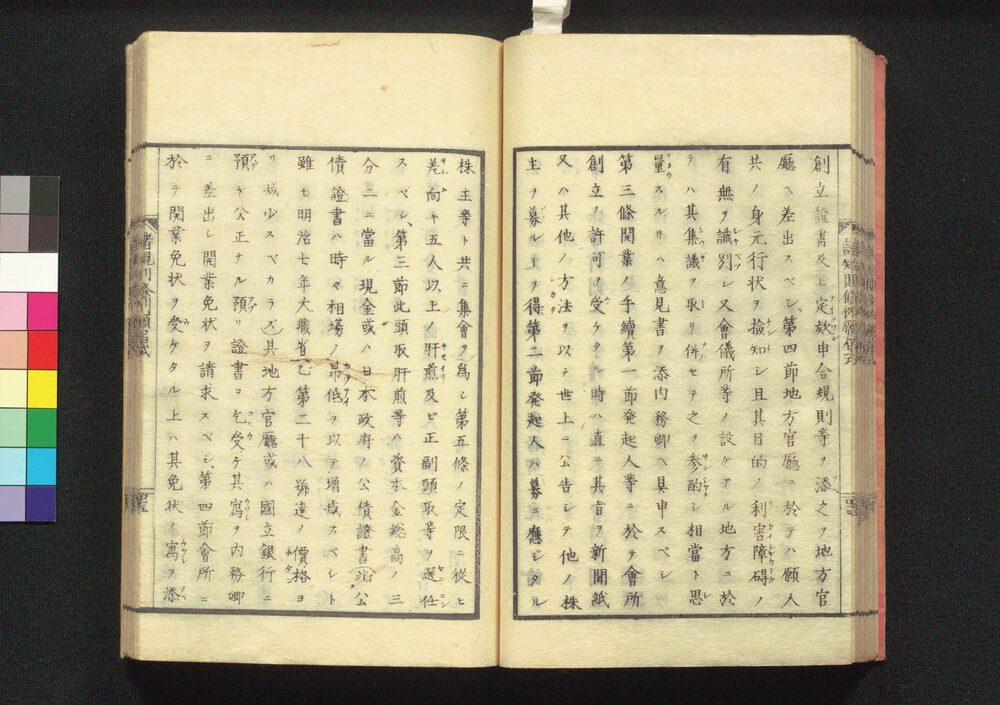 創立證書及ヒ定款申合規則等ヲ添之ヲ地方官
廳ヘ差出スベシ、第四節地方官廳ニ於テハ願人
共ノ身元行状ヲ撿知シ且其目的ノ利害障碍ノ
有無ヲ識別シ又會儀所等ノ設ケアル地方ニ於
テハ其集議ヲ取リ併セテ之ヲ参酌シ相當ト思
量スル時ハ意見書ヲ添内務卿ヘ具申スベシ
第三條開業ノ手續第一節発起人等ニ於テ會所
創立ノ許可ノ受ケタル時ハ直ニ其旨ヲ新聞紙
又ハ其他ノ方法ヲ以テ世上ニ公告シテ他ノ株
主ヲ募ルヿヲ得第二節発起人ハ募ニ應ジタル
株主等ト共ニ集會ヲ爲シ第五條ノ定限ニ從ヒ
差向キ五人以上ノ肝煎及ビ正副頭取等ヲ選任
スベシ、第三節此頭取肝煎等ハ資本金総高ノ三
分二ニ當ル現金或ハ日本政府ノ公債證書(公
債證書ハ時々相場ノ昂低ヲ以テ増减スベシト
雖モ明治七年大藏省乙第二十八號達ノ價格ヨ
リ减少スベカラズ)其地方官廳或ハ國立銀行ニ
預ケ公正ナル預リ證書ヲ乞受ケ其寫ヲ内務卿
ニ差出シ開業免状ヲ請求スベシ、第四節會所ニ
於テ開業免状ヲ受ケタル上ハ其免状ノ寫ヲ添